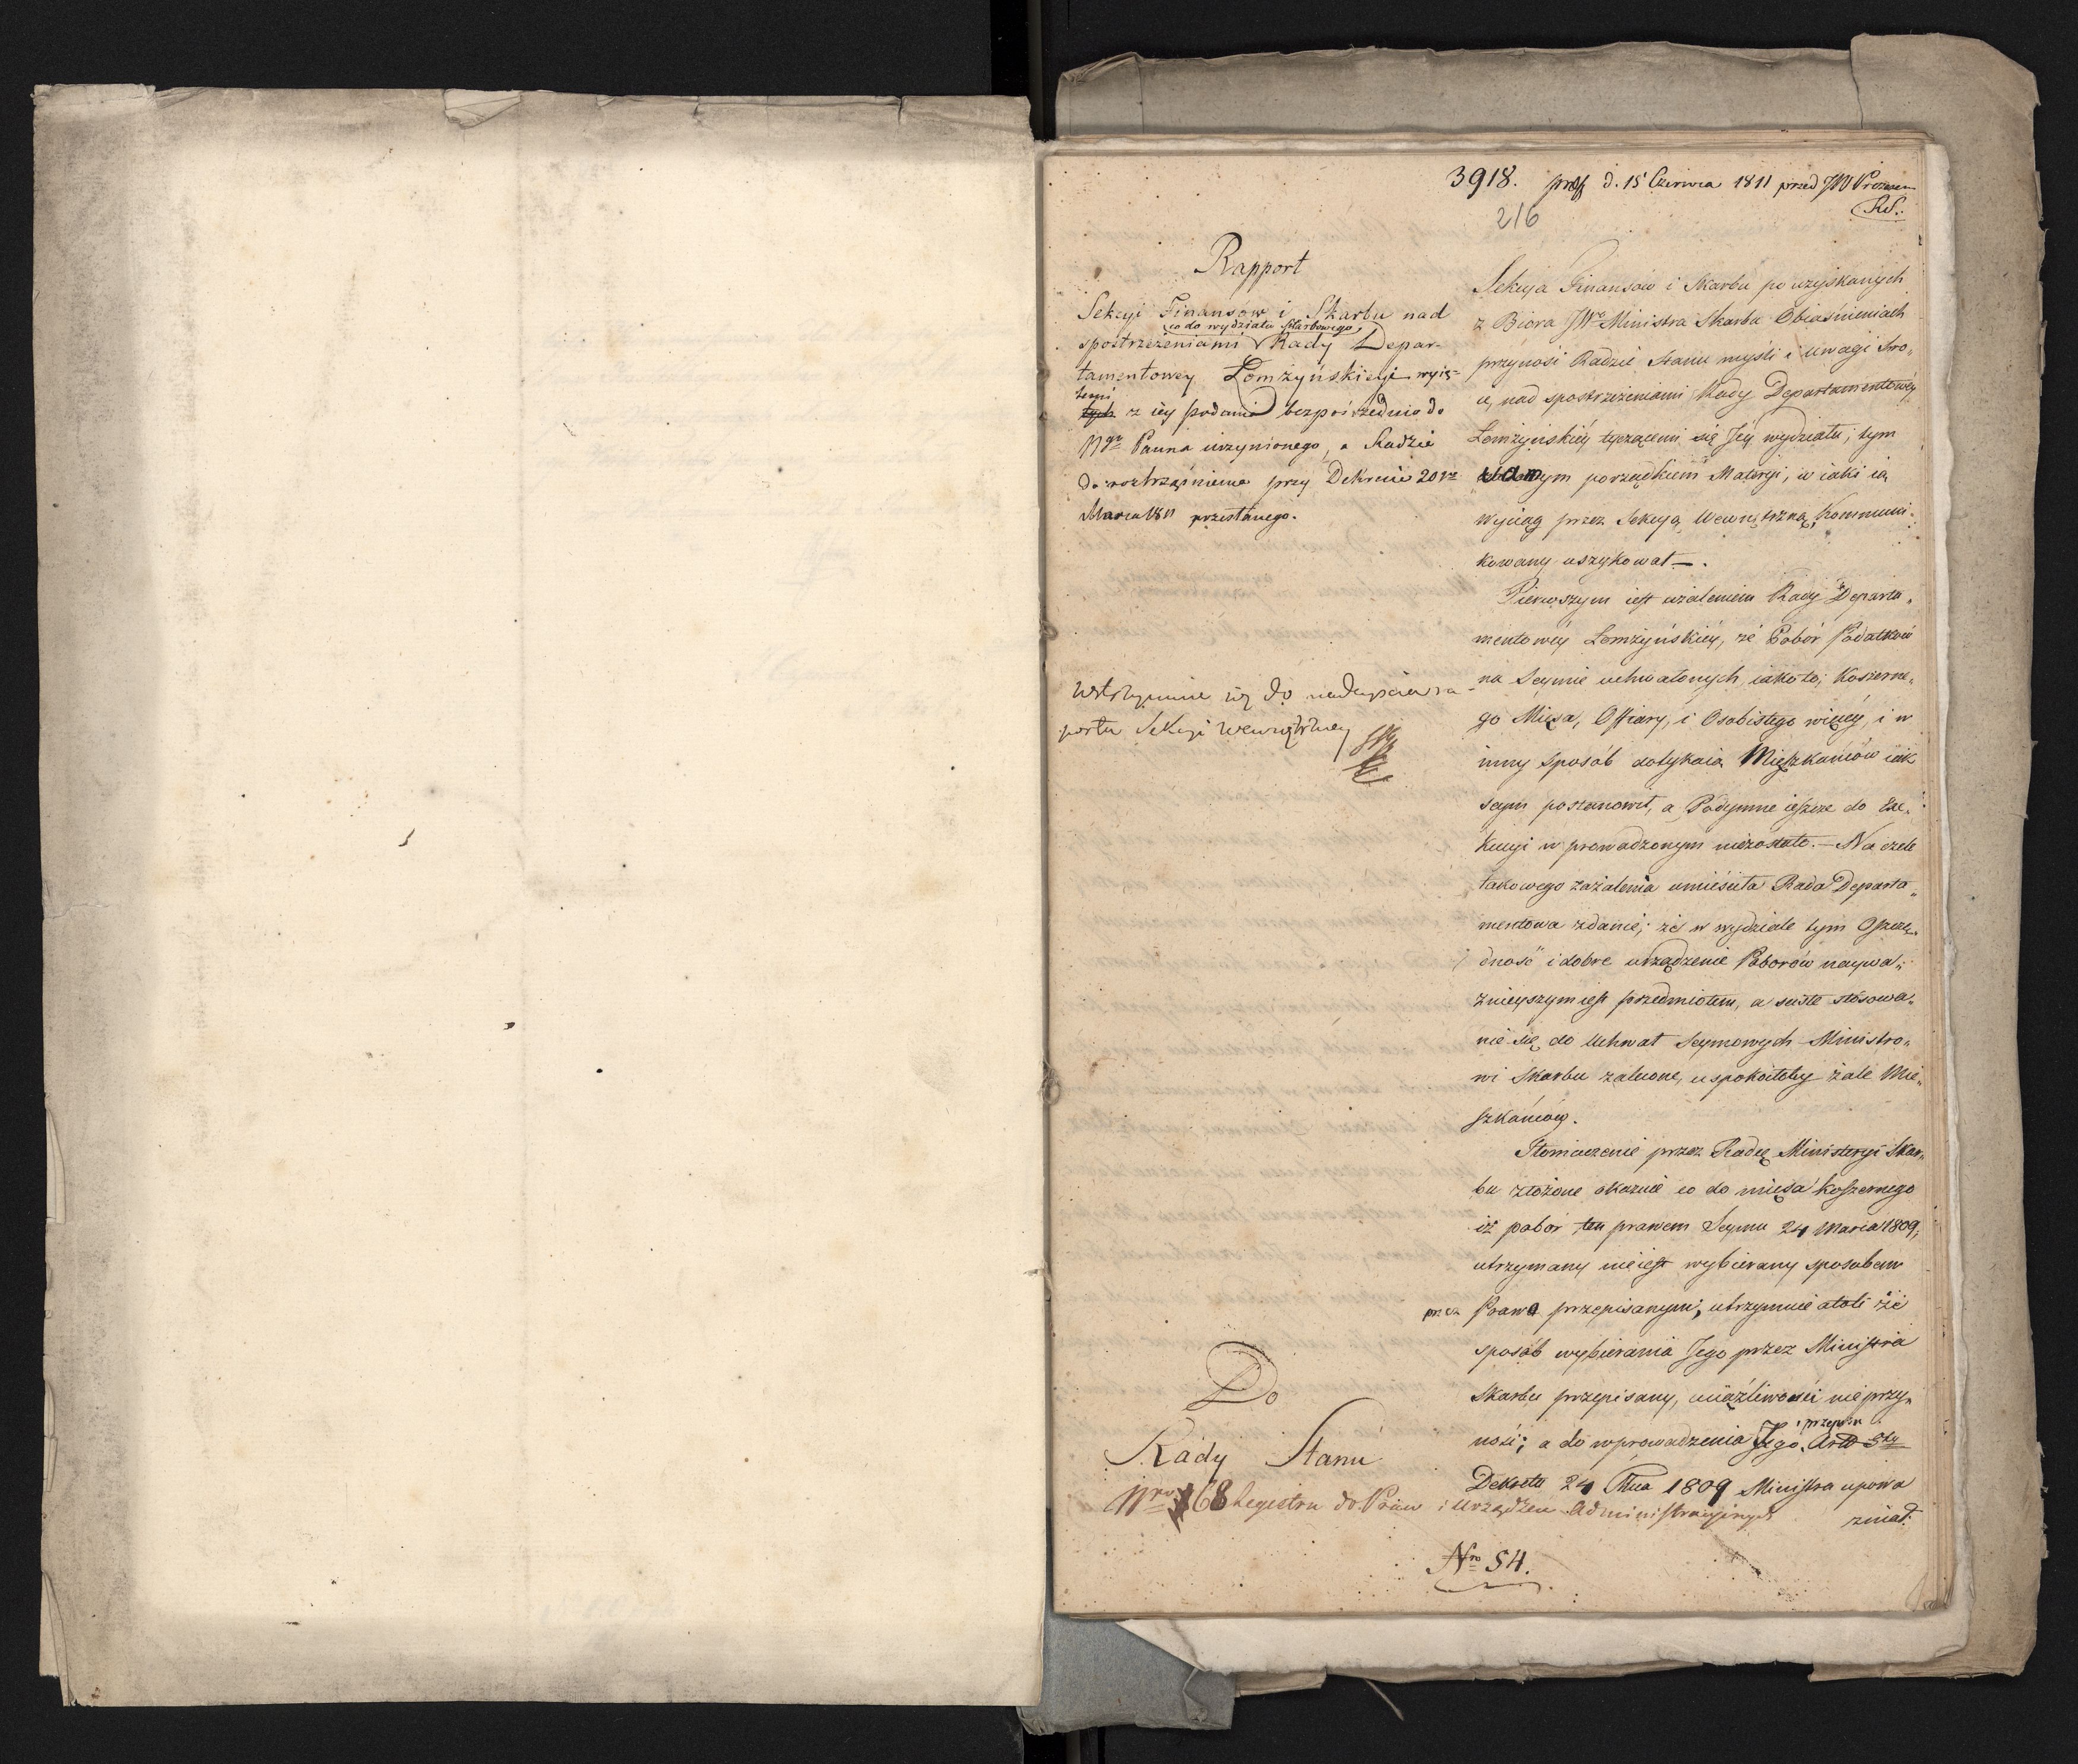 3918. d. 15 Czerwca 1811 przed JW Prezesem
RS.
216
Rapport
Sekcyi Finansów i Skarbu nad
co do wydziału Skarbowego
spostrzeżeniami Rady Depar-
tamentowey Łomżyńskiey wyię-
temi
z iey podania bezpośrzednio do
Ngo Pana uczynionego, a Radzie
do roztrząśnienia przy Dekrecie 20
Marca 1811 przesłanego.
wstrzymuie się do nadeyścia ra-
portu Sekcyi Wewnętrzney
Do
Rady Stanu
Nro 168 Regestru do Praw i Urządzeń Administracyinych
Sekcyja Finansów i Skarbu po uzyskanych
z Biora JWo Ministra Skarbu Obiaśnieniach
przynosi Radzie Stanu myśli i uwagi swo„
ie, nad spostrzeżeniami Rady Departamentowéy
Łomżyńskiéy tyczącemi się Jey wydziału, tym
samym porządkiem Materyi, w iaki ią
wyciąg przez Sekcyą Wewnętrzną kommuni„
kowany uszykował —.
Pierwszym iest użaleniem Rady Departa„
mentowéy Łomżyńskiéy, że Pobór Podatków
na Seymie uchwalonych, iakoto; Koszerne„
go Mięsa, Offiary, i Osobistego więcéy, i w
inny sposób dotykaią Mieszkańców iak
seym postanowił, a Podymne ieszcze do Exe„
kucyi w prowadzonym niezostało. — Na czele
takowego zażalenia umieściła Rada Departa„
mentowa zdanie; że w wydziale tym Oszczę„
dność i dobre urządzenie Poborów naywa„
żnieyszym iest przedmiotem, a ścisłe stósowa„
nie się do Uchwał Seymowych Ministro„
wi Skarbu zalecone, uspokoiłoby żale Mie„
szkańców.
Tłomaczenie przez Radę Ministeryi Skar„
bu złożone okazuie co do mięsa koszernego
iż pobór ten prawem Seymu 24 Marca 1809,
utrzymany nie iest wybierany sposobem
przez Prawo przepisanym, utrzymuie atoli że
sposób wybierania Jego przez Ministra
Skarbu przepisany, uciążliwości nie przy„
nosi; a do wprowadzenia Jego, Art 3ty
Dekretu 24 Mca 1809 Ministra upowa
żniał.
Nro 54.